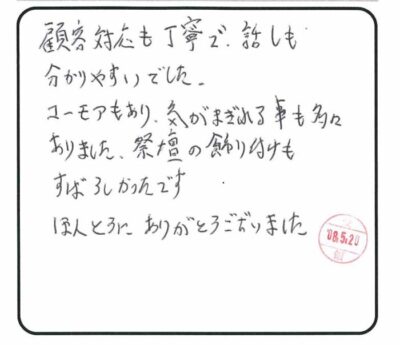 顧客対応も丁寧で、話しも
分かりやすいでした。
ユーモアもあり、気がまぎれる事も多々
ありました、祭壇の飾り付けも
すばらしかったです
ほんとうに ありがとうございました
08.5.20